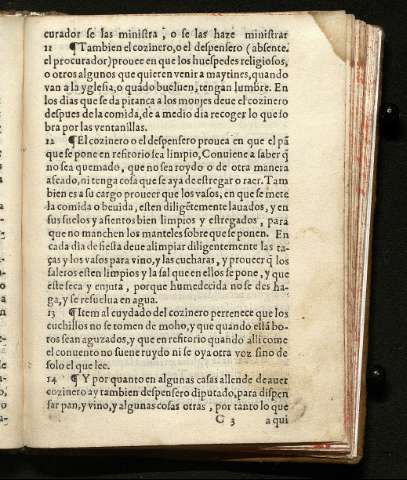 curador se las ministra, o se las haze ministrar
11 ¶ Tambien el cozinero, o el despensero (absente.
el procurador) prouee en que los huespedes religiosos,
o otros algunos que quieren venir a maytines, quando
van a la yglesia, o quādo bueluen, tengan lumbre. En
los dias que se da pitança a los monjes deue el cozinero
despues de la comida, de a medio dia recoger lo que so
bra por las ventanillas.
12 ¶ El cozinero o el despensero prouea en que el pā
que se pone en refitorio sea limpio, Conuiene a saber q̄
no sea quemado, que no sea roydo o de otra manera
aseado, ni tenga cosa que se aya de estregar o raer. Tam
bien es a su cargo proueer que los vasos, en que se mete
la comida o beuida, esten diligētemente lauados, y en
sus suelos y asientos bien limpios y estregados, para
que no manchen los manteles sobre que se ponen. En
cada dia de fiesta deue alimpiar diligentemente las ta-
ças y los vasos para vino, y las cucharas, y proueer q̄ los
saleros esten limpios y la sal que en ellos se pone, y que
este seca y enjuta, porque humedecida no se des ha-
ga, y se resuelua en agua.
13 ¶ Item al cuydado del cozinero pertenece que los
cuchillos no se tomen de moho, y que quando estā bo-
tos sean aguzados, y que en refitorio quando alli come
el conuento no suene ruydo ni se oya otra voz sino de
solo el que lee.
14 ¶ Y por quanto en algunas casas allende de auer
cozinero ay tambien despensero diputado, para dispen
sar pan, y vino, y algunas cosas otras, por tanto lo que
C 3 a qui